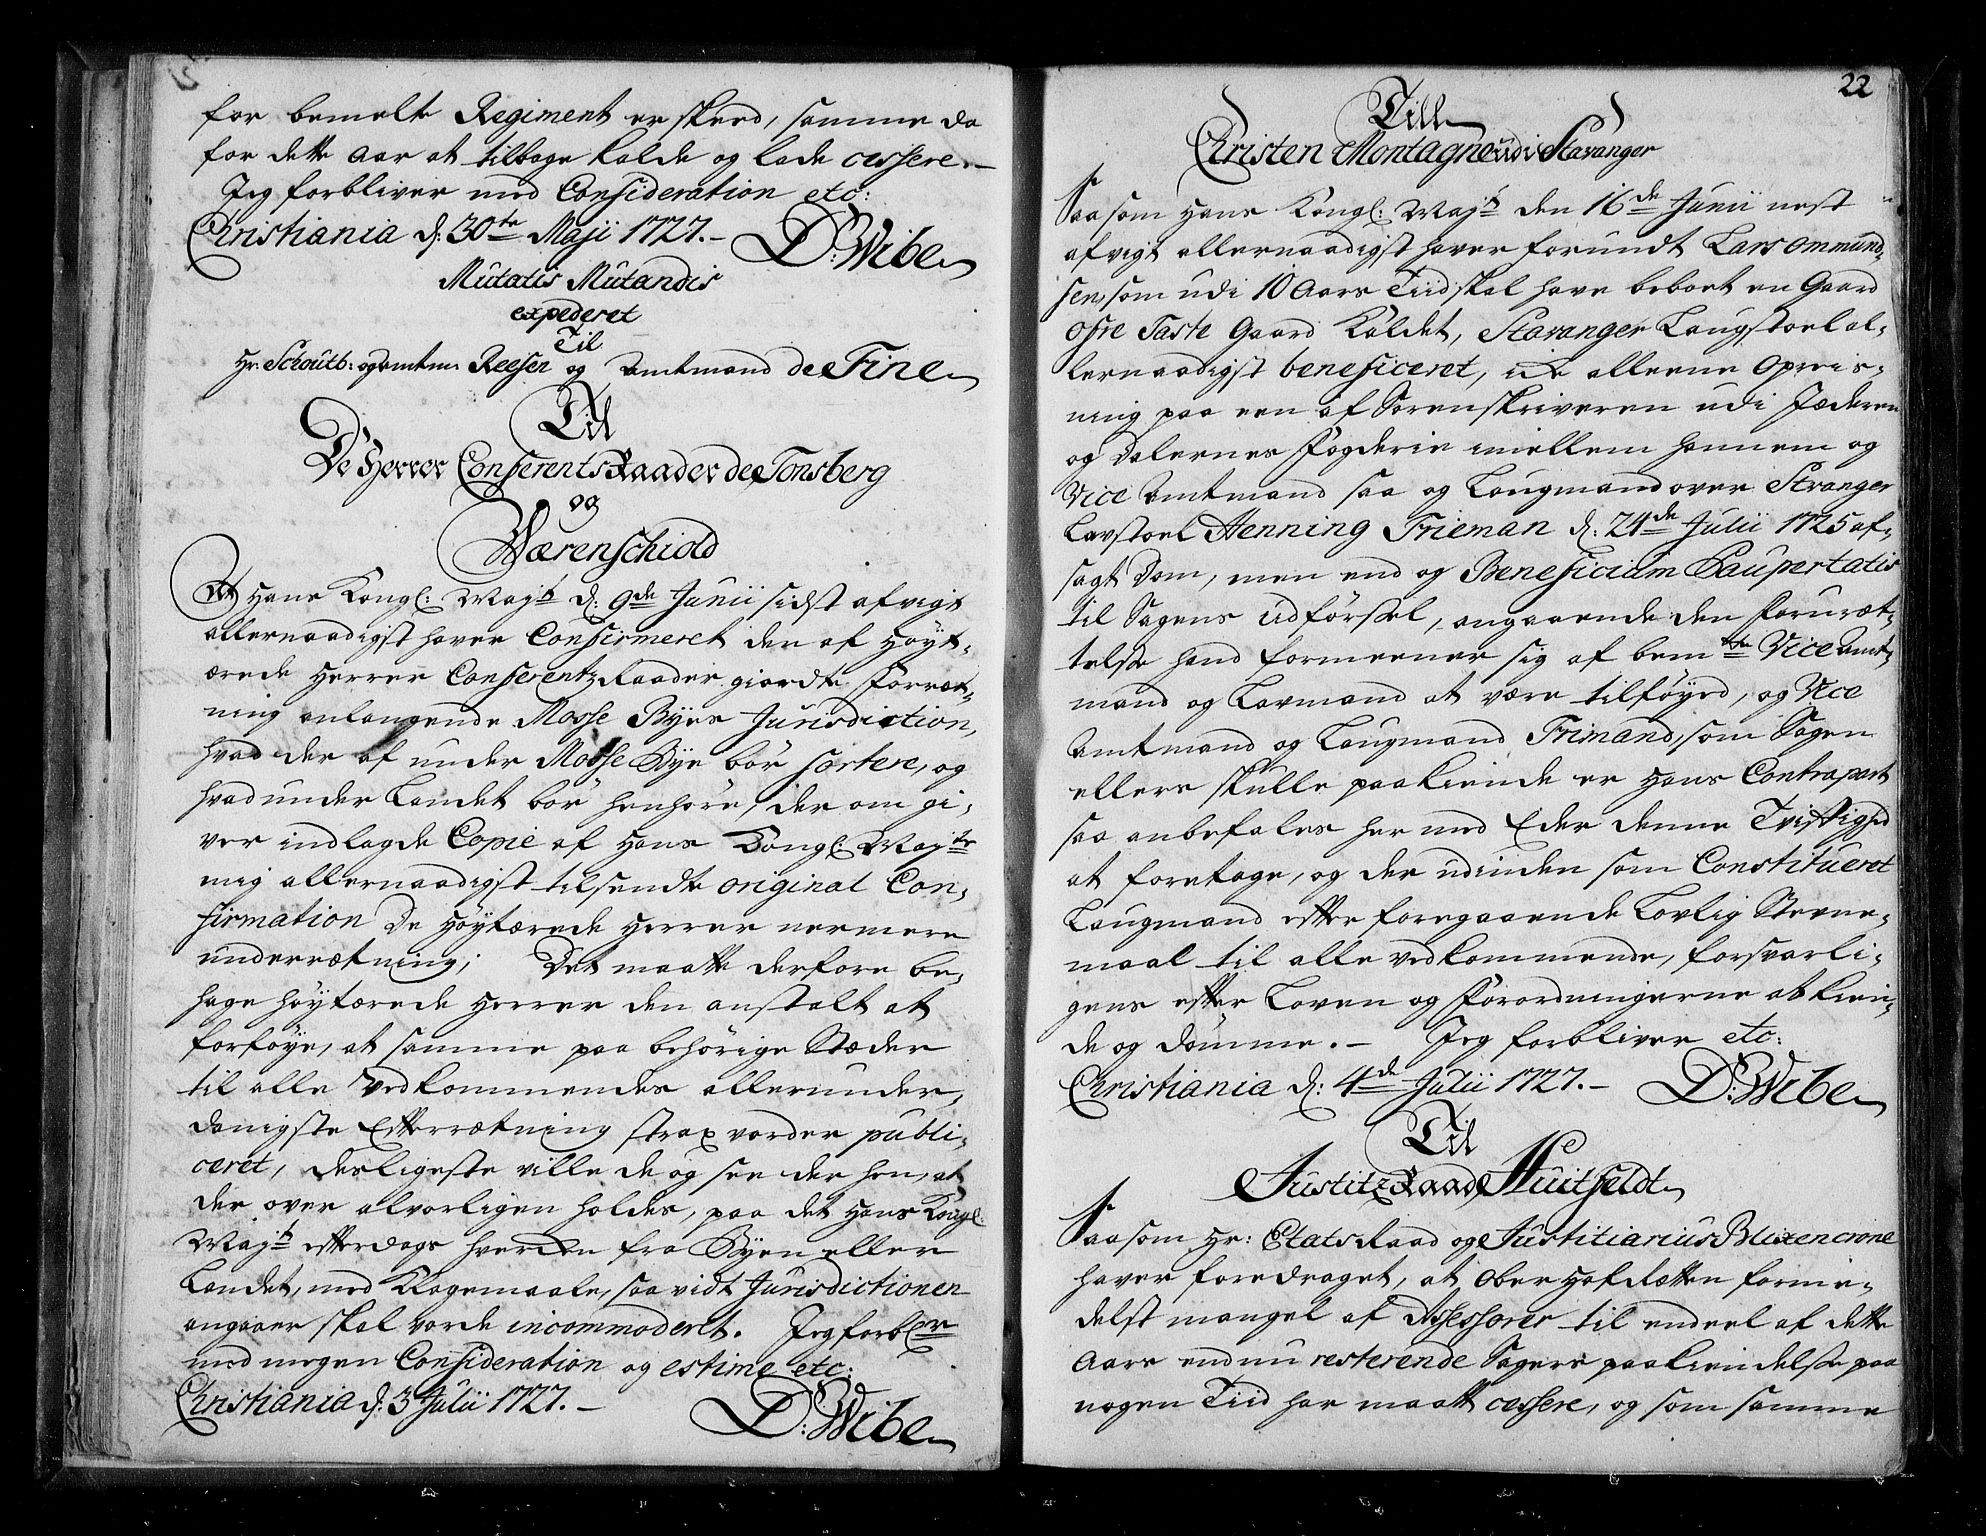 for bemelte Regiment er skeed, samme da
for dette Aar at tilbage kalde og lade cessere. –
Jeg forbliver med Consideration etc:
Christiania d: 30te Maji 1727. – D: Wibe
Mutatis Mutandis
expederet
Til
Hr. Schoutb: og Amtm: Reeser og Amtmand de Fine
Til
De Herrer ConferentsRaader de Tonsberg
og
Wærenschiold
At Hans Kongl: Mayt d: 9de Junii sidst afvigt
allernaadigst haver Confirmeret den af Høyt-
ærede Herrer ConferentzRaader giordte Forræt-
ning anlangende Mosse Byes Jurisdiction,
hvad der af under Mosse Bye bør sortere, og
hvad under Landet bør henhøre, der om gi-
ver indlagde Copie af Hans Kongl: Mayts
mig allernaadigst tilsendte original Con-
firmation De Høytærede Herrer nermere
underrætning; Det maatte derfore be-
hage høytærede Herrer den anstalt at
forføye, at samme paa behørige Stæder
til alle vedkommendes allerunder-
danigste Efterrætning strax vorder publi-
ceret, desligeste ville de og see der hen, at
der over alvorligen holdes, paa det Hans Kongl:
Mayt efterdags hverken fra Byen eller
Landet, med Klagemaale, saa vidt Jurisdictionen
angaaer skal vorde incommoderet. Jeg forbler
med megen Consideration og estime etc:
Christiania d: 3 Julii 1727. –
D: Wibe
22
Till
Christen Montagne udi Stavanger
Saasom Hans Kongl: Mayt den 16de Junii nest
afvigt allernaadigst haver forundt Lars Ommund-
sen, som udi 10 Aars Tiid skal have beboet en Gaard
Ofre Taste Gaard kaldet, Stavanger Laugstoel al-
lernaadigst beneficeret, icke alleene Opreis-
ning paa een af Sorenskriveren udi Jæderen
og Dalernes Fogderie imellem hannem og
Vice Amtmand saa og Laugmand over Stavanger
Lavstoel Henning Frieman d: 24de Julii 1725 af-
sagt Dom, men end og Beneficium Paupertatis
til Sagens Udførsel, angaaende den foruræt-
telse hand formeener sig af bemte Vice Amt-
mand og Lavmand at være tilføyed, og Vice
Amtmand og Laugmand Frimand, som Sagen
ellers skulle paakiende er Hans Contrapart
saa anbefales her med Eder denne Tvistighed
at foretage, og der udinden som Constitueret
Laugmand efter foregaaende Lovlig Stevne-
maal til alle vedkommende, forsvarli-
gens efter Loven og Forordningerne at kien-
de og dømme. – Jeg forbliver etc:
Christiania d: 4de Julii 1727. – D: Wibe
Til
JustitzRaad Huitfeldt
Saasom Hr: EtatsRaad og Justitiarius Blixencrone
haver foredraget, at OberHofRætten forme-
delst mangel af Assessorer til endeel af dette
Aars endnu resterende Sagers paakiendelse paa
nogen Tiid har maatt cessere, og som samme